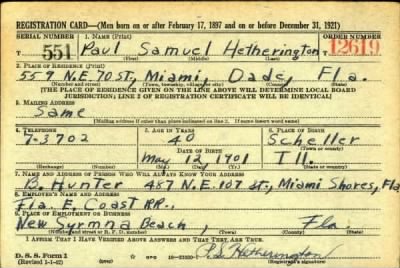 REGISTRATION CARD—(Men born on or after February 17, 1897 and on or before December 31, 1921)
SERIAL NUMBER 1. NAME (Print) ORDER NUMBER
551 Paul Samuel Hetherington 12619
(First) (Middle) (Last)
2. PLACE OF RESIDENCE (Print)
559 N.E. 70 ST., Miami, Dade, Fla.
(Number and street) (Town, township, village, or city) (County) (State)
[THE PLACE OF RESIDENCE GIVEN ON THE LINE ABOVE WILL DETERMINE LOCAL BOARD
JURISDICTION; LINE 2 OF REGISTRATION CERTIFICATE WILL BE IDENTICAL]
3. MAILING ADDRESS
Same
[Mailing address if other than place indicated on line 2. If same insert word same]
4. TELEPHONE 5. AGE IN YEARS 6. PLACE OF BIRTH
7-3702 40 Scheller
DATE OF BIRTH (Town or county)
May 12, 1901 Ill.
(Exchange) (Number) (Mo.) (Day) (Yr.) (State or country)
7. NAME AND ADDRESS OF PERSON WHO WILL ALWAYS KNOW YOUR ADDRESS
B. Hunter 487 N.E. 107 St., Miami Shores, Fla
8. EMPLOYER'S NAME AND ADDRESS
Fla. E. Coast RR.,
9. PLACE OF EMPLOYMENT OR BUSINESS
New Syrmna Beach, Fla.
(Number and street or R. F. D. number) (Town) (County) (State)
I AFFIRM THAT I HAVE VERIFIED ABOVE ANSWERS AND THAT THEY ARE TRUE.
D. S. S. Form 1
(Revised 1-1-42) (over) P.S. Hetherington
(Registrant's signature)